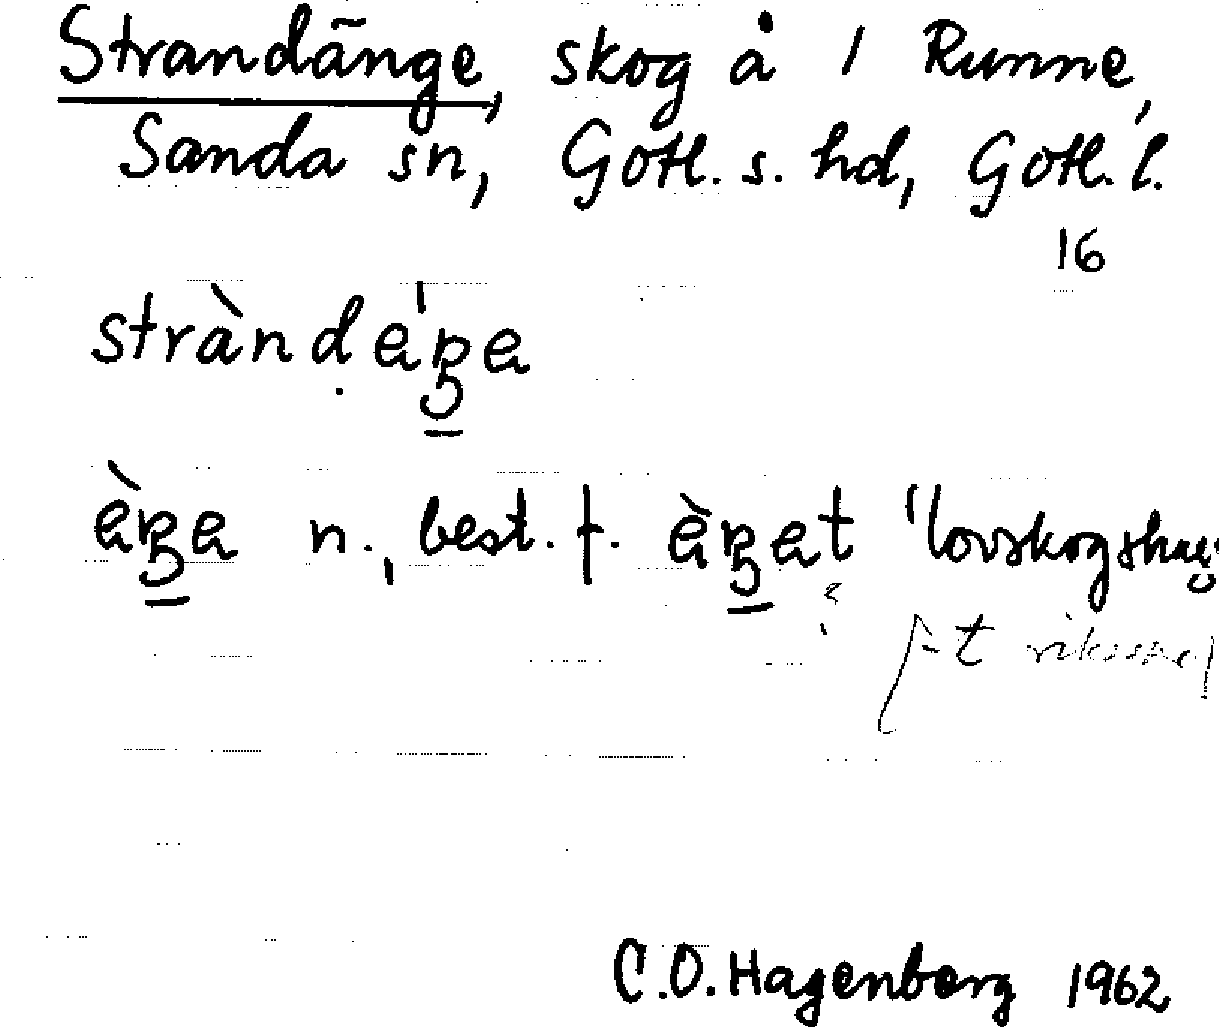 Strandänge, skog å 1 Runne,
Sanda sn, Gotl. s. hd, Gotl. l.
16
stràndeŋe
èŋe n., best. f. èŋet "lovskogshag
t
C.O. Hagenberg 1962